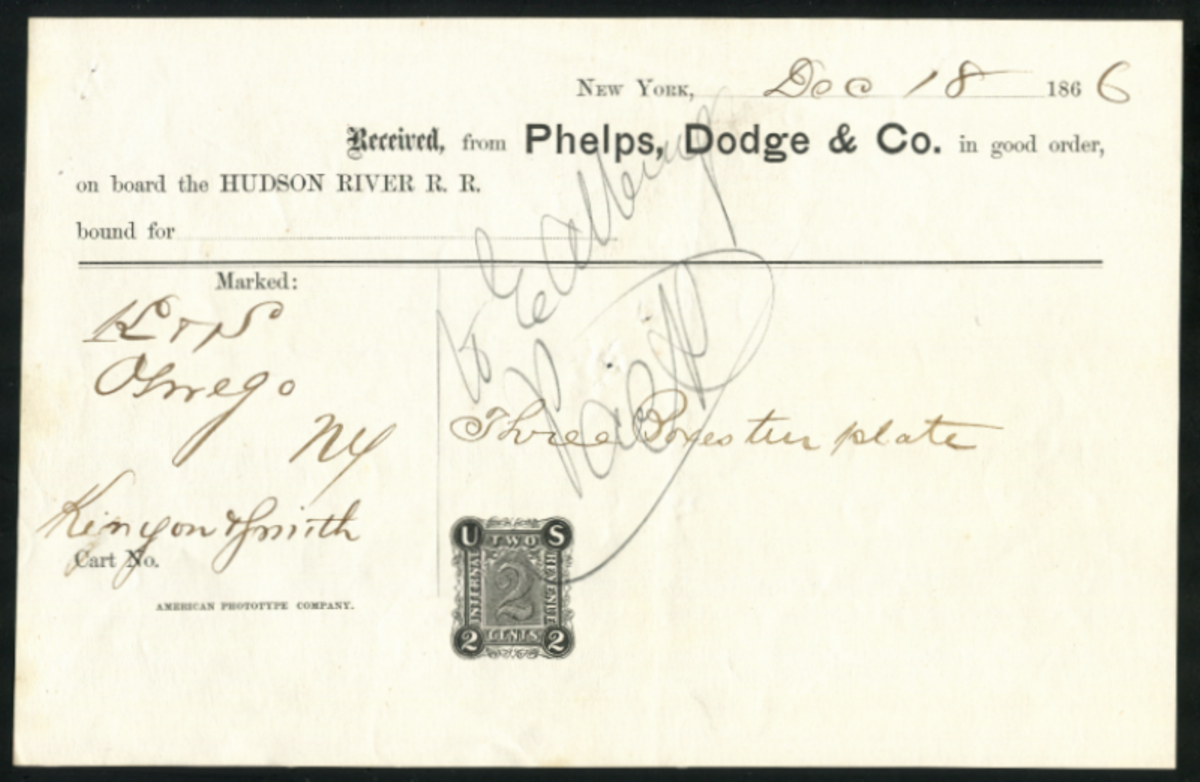 New York, Dec 18 1866
Received, from Phelps, Dodge & Co. in good order,
on board the HUDSON RIVER R. R.
bound for
Marked:
K & S
Oswego
NY
Three Boxes tin plate
Kenyon & Smith
Cart No.
AMERICAN PHOTOTYPE COMPANY.
U S
TWO
INTERNAL REVENUE
2
CENTS
2 2